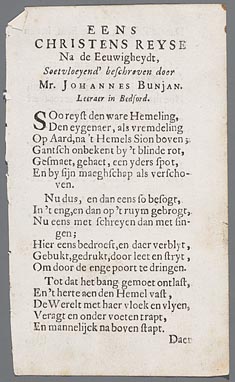 EENS
CHRISTENS REYSE
Na de Eeuwigheydt,
Soetvloeyend' beschreven door
Mr. JOHANNES BUNJAN.
Leeraer in Bedford.
SOo reyst den ware Hemeling,
Den eygenaer, als vremdeling
Op Aard, na 't Hemels Sion boven;
Gantsch onbekent by 't blinde rot,
Gesmaet, gehaet, een yders spot,
En by sijn maeghschap als verscho-
ven.
Nu dus, en dan eens so besogt,
In 't eng, en dan op 't ruym gebrogt,
Nu eens met schreyen dan met sin-
gen;
Hier eens bedroeft, en daer verblyt,
Gebukt, gedrukt, door leet en stryt,
Om door de enge poort te dringen.
Tot dat het bang gemoet ontlast,
En 't herte aen den Hemel vast,
De Werelt met haer vloek en vlyen,
Veragt en onder voeten trapt,
En mannelijck na boven stapt.
Daer